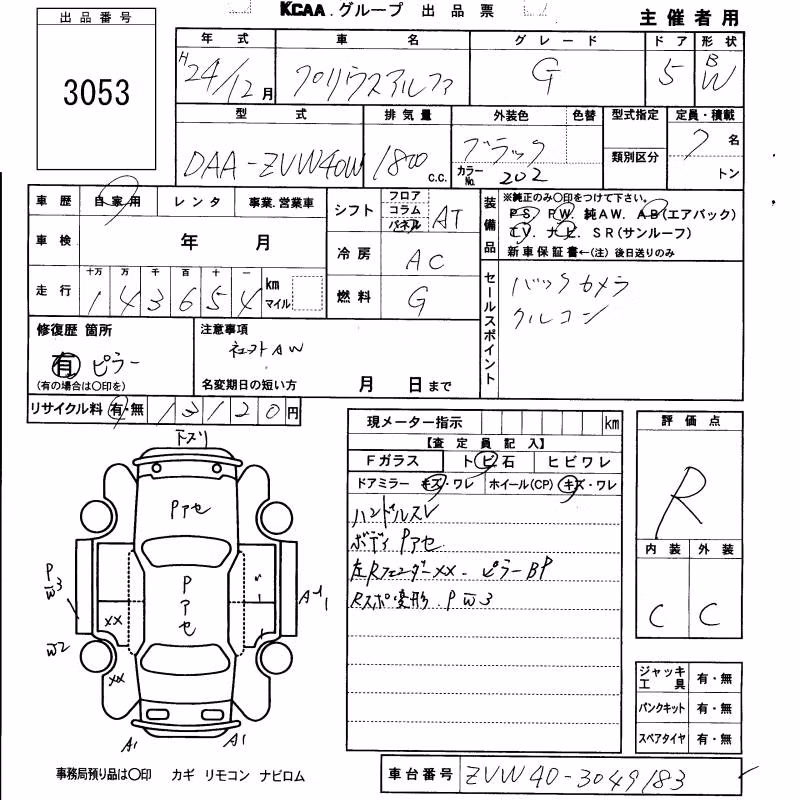 KCAA.グループ 出品票
主催者用
出品番号
3053
年式 車名 グレード ドア 形状
H24/12月 プリウスアルファ G 5 BW
型式 排気量 外装色 色替 型式指定 定員・積載
DAA-ZVW40W 1800 c.c. ブラック 7名
カラーNo. 202 類別区分 トン
車歴 自家用 レンタ 事業.営業車
車検 年 月
走行 十万 万 千 百 十 一 km マイル
1 4 3 6 5 4
シフト フロア コラム パネル AT
冷房 AC
燃料 G
装備品
※純正のみ○印をつけて下さい。
PS. PW. 純AW. AB(エアバック)
TV. ナビ. SR(サンルーフ)
新車保証書←(注) 後日送りのみ
セールスポイント
バックカメラ
クルコン
修復歴 箇所
有 ピラー
(有の場合は○印を)
注意事項
社外AW
名変期日の短い方 月 日まで
リサイクル料 有・無 13120円
現メーター指示 km
【査定員記入】
Fガラス トビ石 ヒビワレ
ドアミラー キズ・ワレ ホイール(CP) キズ・ワレ
ハンドルスレ
ボディPアセ
左Rフェンダーxx. ピラーBP
Rスポ変形. P W3
評価点
R
内装 外装
C C
ジャッキ工具 有・無
パンクキット 有・無
スペアタイヤ 有・無
下スリ
Pアセ
P W3
Pアセ
xx
A1
W2
xx
A1 A1
事務局預り品は○印 カギ リモコン ナビロム
車台番号 ZVW40-3049183